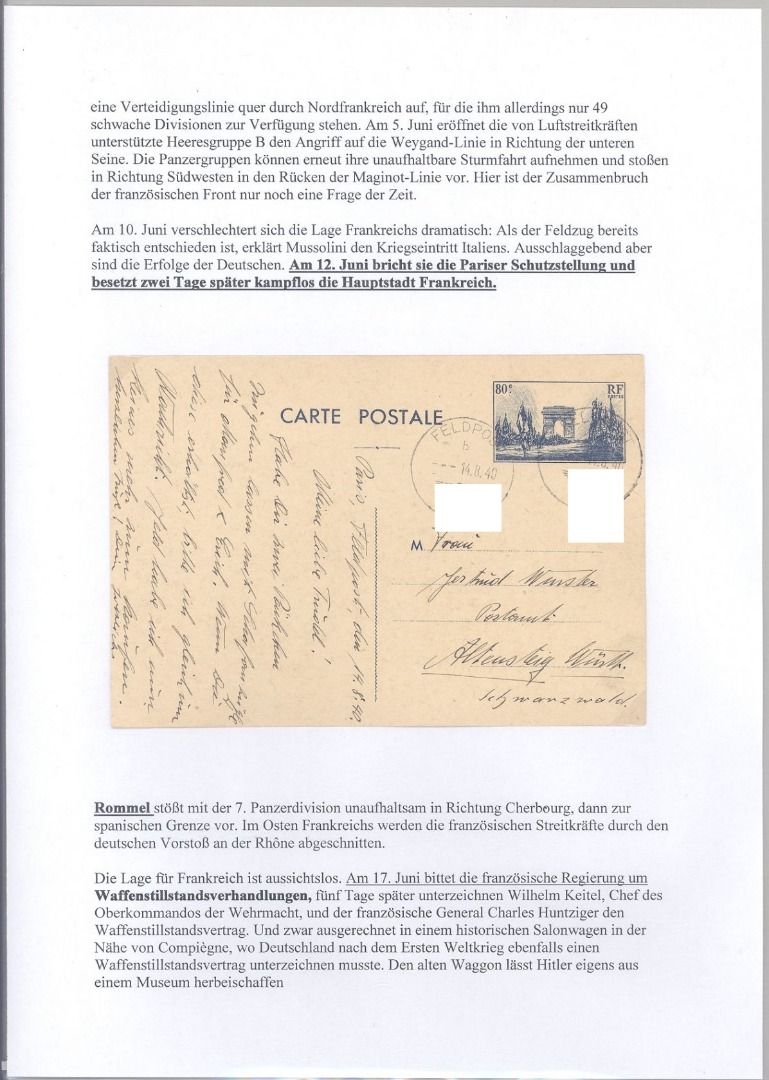 eine Verteidigungslinie quer durch Nordfrankreich auf, für die ihm allerdings nur 49
schwache Divisionen zur Verfügung stehen. Am 5. Juni eröffnet die von Luftstreitkräften
unterstützte Heeresgruppe B den Angriff auf die Weygand-Linie in Richtung der unteren
Seine. Die Panzergruppen können erneut ihre unaufhaltbare Sturmfahrt aufnehmen und stoßen
in Richtung Südwesten in den Rücken der Maginot-Linie vor. Hier ist der Zusammenbruch
der französischen Front nur noch eine Frage der Zeit.
Am 10. Juni verschlechtert sich die Lage Frankreichs dramatisch: Als der Feldzug bereits
faktisch entschieden ist, erklärt Mussolini den Kriegseintritt Italiens. Ausschlaggebend aber
sind die Erfolge der Deutschen. Am 12. Juni bricht sie die Pariser Schutzstellung und
besetzt zwei Tage später kampflos die Hauptstadt Frankreich.
80c RF
POSTES
CARTE POSTALE
FELDPO
b
14.8.40
Paris, Feldpost, den 14.8.40.
Meine liebe Trudl!
Habe Dir zwei Päckchen
lassen mit
für Manfred & Erich. Wenn Du
diese erhältst, bitte ich gleich um
Nachricht. Jetzt habe ich nun
keines mehr
M Frau
Gertrud Wurster
Postamt
Altensteig Württ.
Schwarzwald.
Rommel stößt mit der 7. Panzerdivision unaufhaltsam in Richtung Cherbourg, dann zur
spanischen Grenze vor. Im Osten Frankreichs werden die französischen Streitkräfte durch den
deutschen Vorstoß an der Rhône abgeschnitten.
Die Lage für Frankreich ist aussichtslos. Am 17. Juni bittet die französische Regierung um
Waffenstillstandsverhandlungen, fünf Tage später unterzeichnen Wilhelm Keitel, Chef des
Oberkommandos der Wehrmacht, und der französische General Charles Huntziger den
Waffenstillstandsvertrag. Und zwar ausgerechnet in einem historischen Salonwagen in der
Nähe von Compiègne, wo Deutschland nach dem Ersten Weltkrieg ebenfalls einen
Waffenstillstandsvertrag unterzeichnen musste. Den alten Waggon lässt Hitler eigens aus
einem Museum herbeischaffen